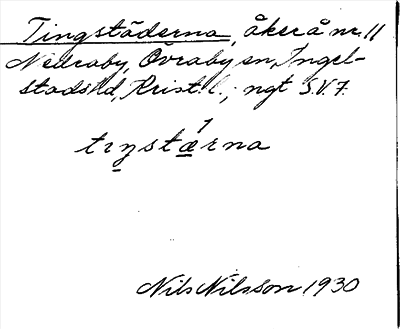 Tingstäderna, åker å nr. 11
Nedraby, Övraby sn, Ingel-
stads hd, Krist. l., ngt S.V. 7.
trŋstǽrna
Nils Nilsson 1930